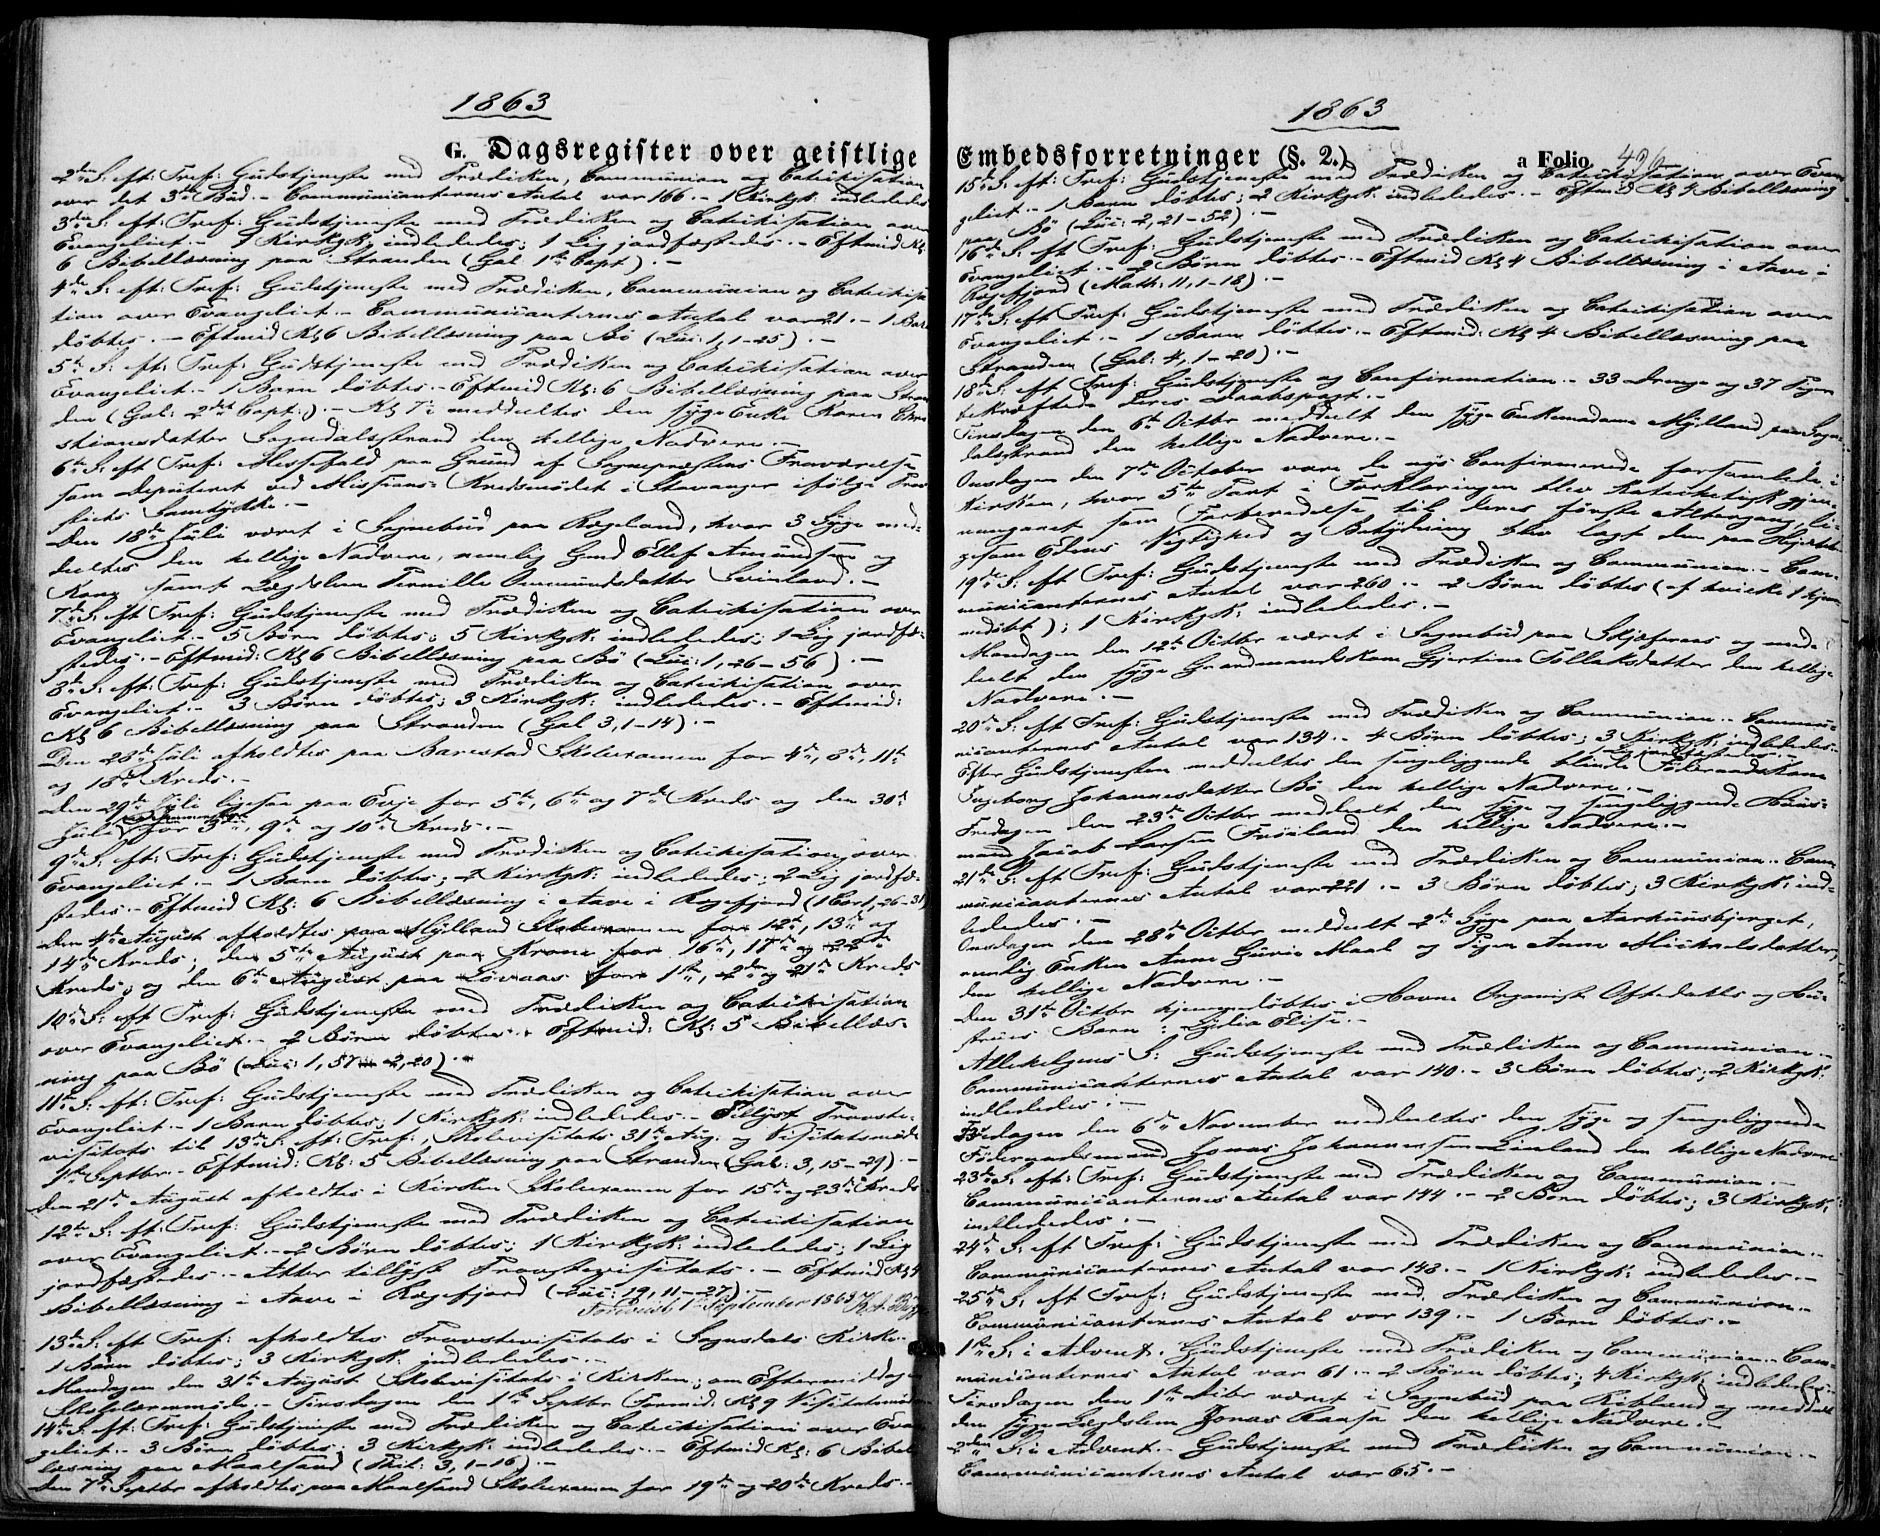 1863
G. Dagsregister over geistlige
2den S: eft: Tref: Gudstjeneste med Prædiken, Communion og Catechisation
over det 3die Bud. - Communicanternes Antal var 166. - 1 Kirkgk: indlededes
3die S: eft: Tref: Gudstjeneste med Prædiken og Catechisation over
Evangeliet. - 1 Kirkgk: indlededes; 1 Lig jordfæstedes. - Eftmid Kl
6 Bibellæsning paa Stranden (Gal 1ste Capt). -
4de S: eft: Tref: Gudstjeneste med Prædiken, Communion og Catechisa
tion over Evangeliet. - Communicanternes Antal var 21. - 1 Barn
døbtes. - Eftmid Kl 6 Bibellæsning paa Bö (Luc: 1, 1-25). -
5te S: eft: Tref: Gudstjeneste med Prædiken og Catechisation over
Evangeliet. - 1 Barn døbtes. - Eftmid Kl: 6 Bibellæsning paa Stran
den (Gal: 2det Capt:). - Kl 7 meddeltes den syge Enke Karen Chri
stiansdatter Sogndalsstrand den hellige Nadvere. -
6te S: eft Tref: Messefald paa Grund af Sognepræstens Fraværelse
som deputeret ved Missions-Kredsmødet i Stavanger ifölge Prov
stiets Samtykke. -
Den 18de Juli været i Sognebud paa Rægeland, hvor 3 Syge med-
deeltes den hellige Nadvere, nemlig Gmd Ellef Amundsen og
Kone samt Lægdslem Pernille Ommundsdatter Svinland. -
7de S: eft Tref: Gudstjeneste med Prædiken og Catechisation over
Evangeliet. - 5 Børn døbtes; 5 Kirkgk: indlededes; 1 Lig jordfæ-
stedes. - Eftmid: Kl 6 Bibellæsning paa Bö (Luc: 1, 26-56). -
8de S: eft: Tref: Gudstjeneste med Prædiken og Catechisation over
Evangeliet. - 3 Børn døbtes; 3 Kirkgk: indlededes. - Eftmid:
Kl 6 Bibellæsning paa Stranden (Gal 3, 1-14). -
Den 28de Juli afholdtes paa Barestad Skoleexamen for 4de, 8de, 11te
og 18de Kreds. -
Den 29de Juli ligesaa paa Evje for 5te, 6te og 7de Kreds og den 30te
Juli for 3die, 9de og 10de Kreds. -
9de S: eft: Tref: Gudstjeneste med Prædiken og Catechisation over
Evangeliet. - 1 Barn døbtes; 2 Kirkgk: indlededes; 2 Lig jordfæ-
stedes. - Eftmid Kl: 6 Bibellæsning i Aave i Rægefjord (1 Cor 1, 26-31)
Den 4de August afholdtes paa Mÿlland Skoleexamen for 12te, 13de og
14de Kreds; den 5te August paa Krone for 16de, 17de og 22de
Kreds; og den 6te August paa Løvaas for 1ste, 2den og 21de Kreds
10de S: eft Tref: Gudstjeneste med Prædiken og Catechisation
over Evangeliet. - 2 Børn døbtes. - Eftmid: Kl: 5 Bibellæs-
ning paa Bö (Luc: 1, 57 - 2, 20). -
11te S: eft: Tref: Gudstjeneste med Prædiken og Catechisation over
Evangeliet. - 1 Barn døbtes; 1 Kirkgk: indlededes. - Tillyst Provste-
visitats til 13de S: eft: Tref:, Skolevisitats 31te Aug: og Visitatsmøde
1ste Septbr. - Eftmid: Kl: 5 Bibellæsning paa Stranden (Gal: 3, 15-29). -
Den 21de August afholdtes i Kirken Skoleexamen for 15de og 23de Kreds
12te S: eft: Tref: Gudstjeneste med Prædiken og Catechisation
over Evangeliet. - 2 Børn døbtes; 1 Kirkgk: indlededes; 1 Lig
jordfæstedes. - Atter tillyst Provstevisitats. - Eftmid Kl 4
Bibellæsning i Aave i Rægefjord (Luc: 19, 11-27). -
1 September 1863
13de S: eft Tref: afholdtes Provstevisitats i Sogndals Kirke. -
1 Barn døbtes; 3 Kirkgk: indlededes. -
Mandagen den 31te August Skolevisitats i Kirken; om Eftermiddagen
Skolelærermøde. - Tirsdagen den 1ste Septbr Formid: Kl 9 Visitatsmøde
14de S: eft: Tref: Gudstjeneste med Prædiken og Catechisation over Evan
geliet. - 3 Børn døbtes; 3 Kirkgk: indlededes. - Eftmid Kl: 6 Bibel
læsning paa Maalsund (Phil: 3, 1-16). -
Den 7de Septbr afholdtes paa Maalsund Skoleexamen for 19de og 20de Kreds. -
1863
Embedsforretninger (§. 2.)
a Folio 426
15de S: eft: Tref: Gudstjeneste med Prædiken og Catechisation over Evan
geliet. - 1 Barn døbtes; 2 Kirkgk: indlededes. - Eftmid Kl 4 Bibellæsning
paa Bö (Luc: 2, 21-52). -
16de S: eft Tref: Gudstjeneste med Prædiken og Catechisation over
Evangeliet. - 2 Børn døbtes. - Eftmid Kl 4 Bibellæsning i Aave i
Rægefjord (Math: 11, 1-18). -
17de S: eft Tref: Gudstjeneste med Prædiken og Catechisation over
Evangeliet. - 1 Barn døbtes. - Eftmid: Kl 4 Bibellæsning paa
Stranden (Gal: 4, 1-20). -
18de S: eft Tref: Gudstjeneste og Confirmation. - 33 Drenge og 37 Piger
bekræftede deres Daabspagt. -
Tirsdagen den 6te Octbr meddelt den syge Enkemadame Mÿlland paa Sogn-
dalsstrand den hellige Nadvere. -
Onsdagen den 7de October vare de nys Confirmerede forsamlede i
Kirken, hvor 5te Part i Forklaringen blev katechetisk gjen-
nemgaaet som Forberedelse til deres første Altergang, li-
gesom Edens Vigtighed og Betydning blev lagt dem paa Hjertet
19de S: eft Tref: Gudstjeneste med Prædiken og Communion. - Com-
municanternes Antal var 260. - 2 Børn døbtes (af hvilke 1 hjem-
medøbt); 1 Kirkgk: indlededes. -
Mandagen den 12te Octbr været i Sognebud paa Skjefvenes og med-
deelt den syge Gaardmandskone Gjertine Tollaksdatter den hellige
Nadvere. -
20de S: eft Tref: Gudstjeneste med Prædiken og Communion. - Commu-
nicanternes Antal var 134. - 4 Børn døbtes; 3 Kirkgk: indlededes. -
Efter Gudstjenesten meddeltes den sengeliggende blinde Føderaadskone
Ingeborg Johannesdatter Bö den hellige Nadvere. -
Fredagen den 23de Octbr meddelt den syge og sengeliggende Huus-
mand Jacob Larsen Frøiland den hellige Nadvere. -
21de S: eft Tref: Gudstjeneste med Prædiken og Communion. - Com
municanternes Antal var 221. - 3 Børn døbtes; 3 Kirkgk: ind-
lededes. -
Onsdagen den 28de Octbr meddelt 2de Syge paa Aarhuusbjerget,
nemlig Enken Anne Gurie Maal og Pigen Anne Michaelsdatter,
den hellige Nadvere. -
Den 31te Octbr hjemmedøbtes i Havne Organist Oftedahls og Hu-
strues Barn: Lydia Elise. -
Allehelgens S: Gudstjeneste med Prædiken og Communion. -
Communicanternes Antal var 140. - 3 Børn døbtes; 2 Kirkgk:
indlededes. -
Fredagen den 6te November meddeltes den syge og sengeliggende
Føderaadsmand Jonas Johannesen Lindland den hellige Nadvere
23de S: eft: Tref: Gudstjeneste med Prædiken og Communion. -
Communicanternes Antal var 144. - 2 Børn døbtes; 3 Kirkgk:
indlededes. -
24de S: eft Tref: Gudstjeneste med Prædiken og Communion. -
Communicanternes Antal var 148. - 1 Kirkgk: indlededes. -
25de S: eft Tref: Gudstjeneste med Prædiken og Communion. -
Communicanternes Antal var 139. - 1 Barn døbtes. -
1ste S: i Advent. Gudstjeneste med Prædiken og Communion. - Com-
municanternes Antal var 61. - 2 Børn døbtes; 4 Kirkgk: indlededes. -
Tirsdagen den 1ste Decbr været i Sognebud paa Kibland og meddelt
den syge Lægdslem Jonas Aansa den hellige Nadvere. -
2den S: i Advent. - Gudstjeneste med Prædiken og Communion. -
Communicanternes Antal var 65. -